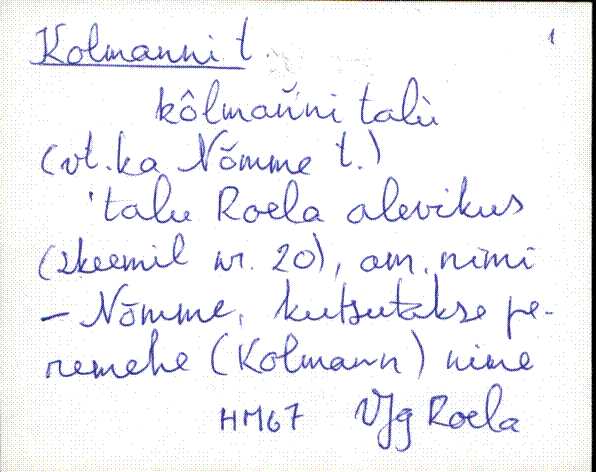 Kolmanni t. 1
kôlman̆ni talù
(vt. ka Nõmme t.)
'talu Roela alevikus
(skeemil nr. 20), am. nimi
– Nõmme, kutsutakse pe-
remehe (Kolmann) nime
HM67 VJg Roela